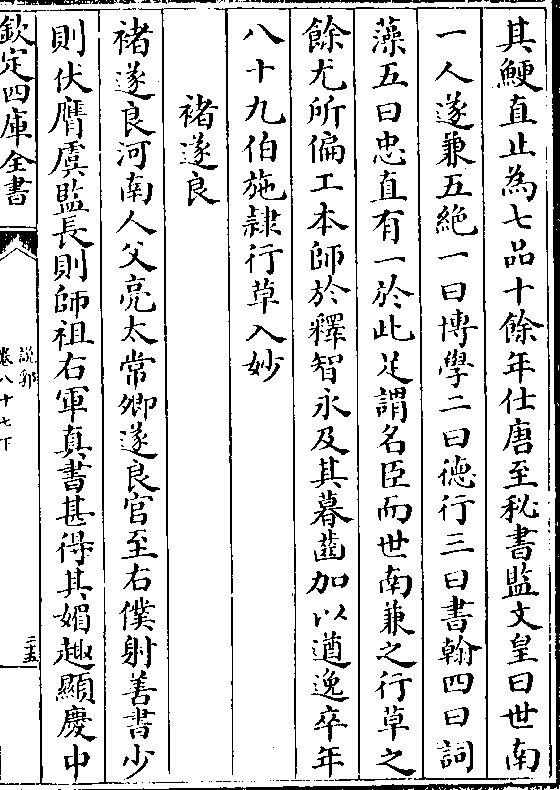 其鯁直止為七品十餘年仕唐至秘書監文皇曰世南
一人遂兼五絶一曰博學二曰徳行三曰書翰四曰詞
藻五曰忠直有一於此足謂名臣而世南兼之行草之
餘尤所偏工本師於釋智永及其暮齒加以遒逸卒年
八十九伯施隷行草入妙
褚遂良
褚遂良河南人父亮太常卿遂良官至右僕射善書少
則伏膺虞監長則師祖右軍真書甚得其媚趣顯慶中
欽定四庫全書
說郛
卷八十七下
二十五